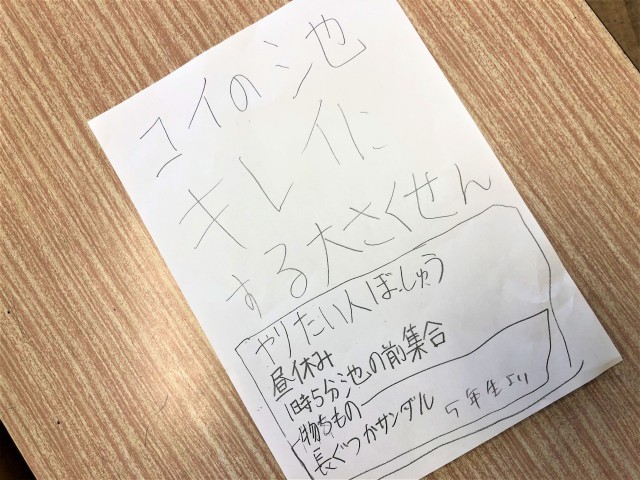 コイの池
キレイに
する大さくせん
やりたい人ぼしゅう
昼休み
1時5分池の前集合
物ちもの
長ぐつかサンダル
5年生より